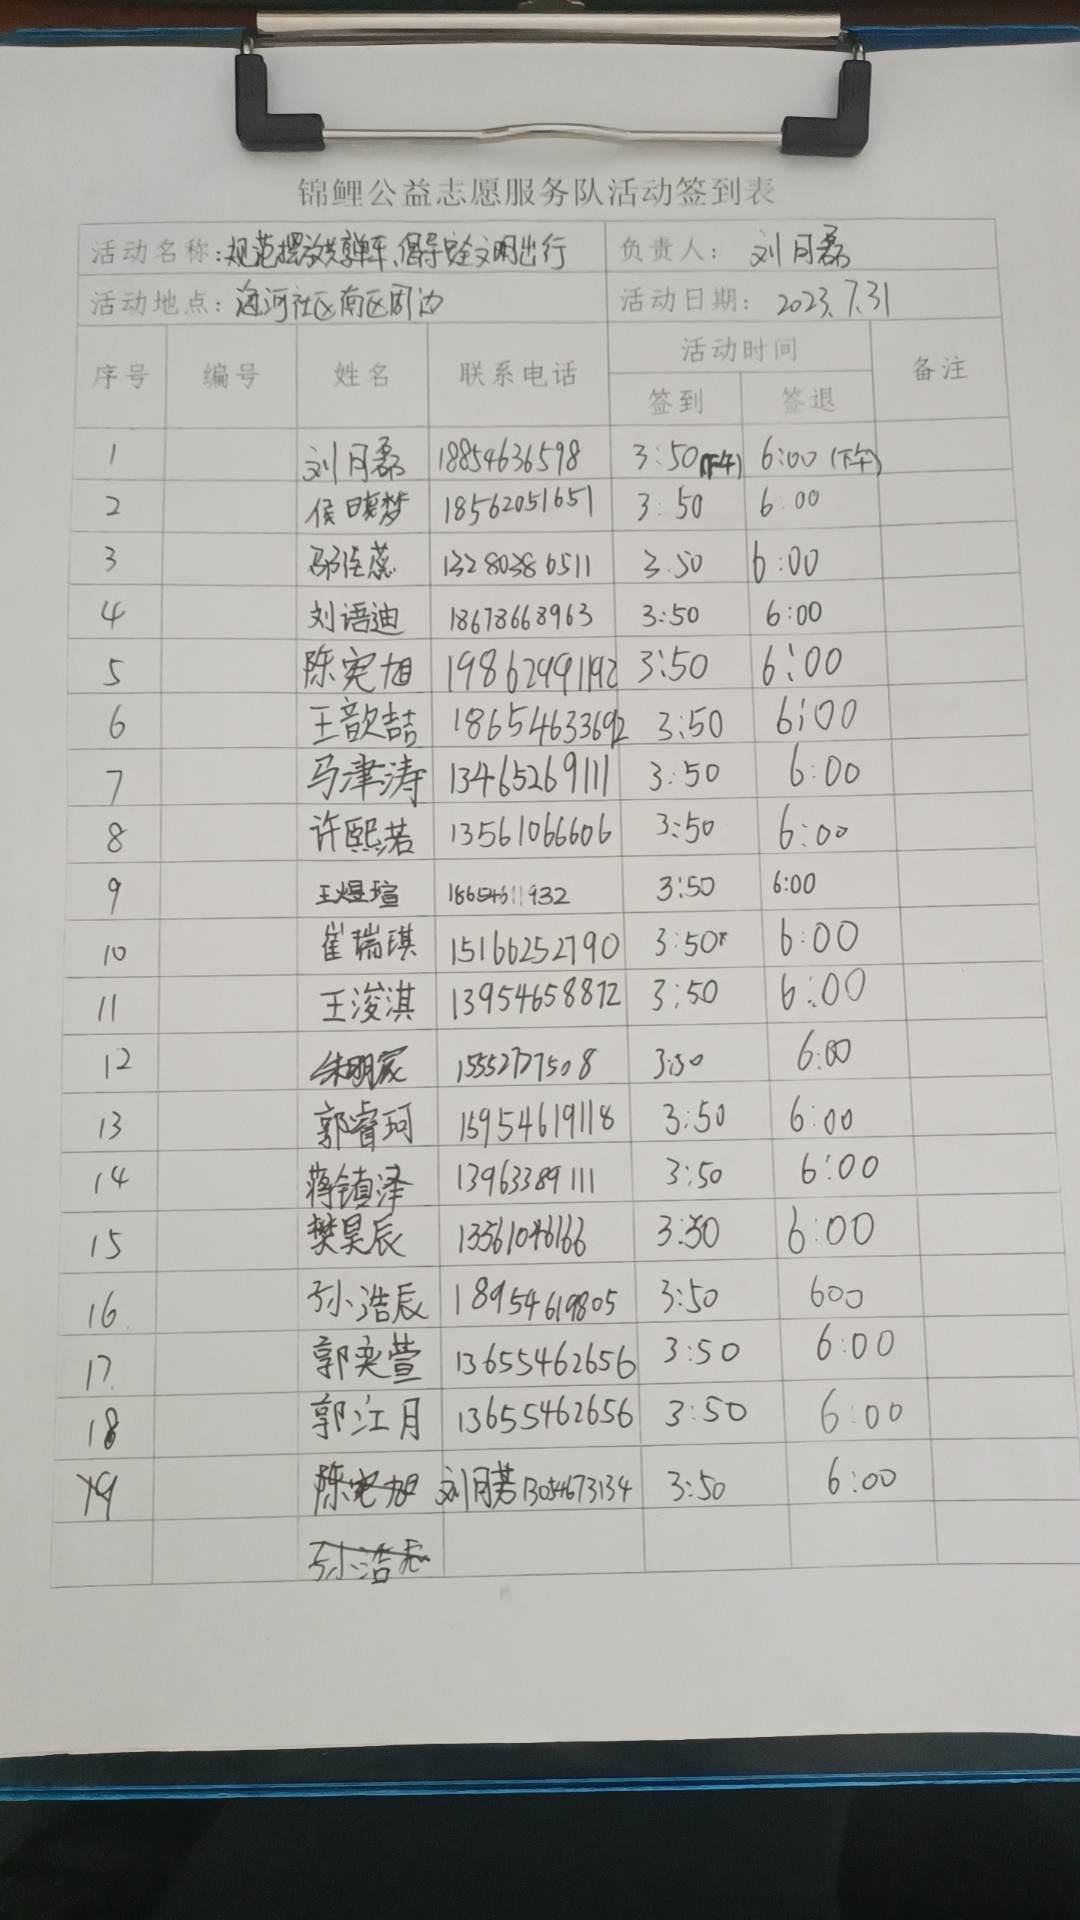 锦鲤公益志愿服务队活动签到表
活动名称：规范摆放共享单车、倡导安全文明出行 负责人： 刘月磊
活动地点：海河社区南区周边 活动日期： 2023.7.31
序号 编号 姓名 联系电话 活动时间 备注
签到 签退
1 刘月磊 18854636598 3:50(下午) 6:00(下午)
2 侯晓梦 18562051651 3:50 6:00
3 13280386511 3:50 6:00
4 刘语迪 18678668963 3:50 6:00
5 陈宪旭 19862991192 3:50 6:00
6 王歆喆 18654633692 3:50 6:00
7 马津涛 13465269111 3:50 6:00
8 许熙若 13561066606 3:50 6:00
9 王煜瑄 18654611932 3:50 6:00
10 崔瑞琪 15166252790 3:50 6:00
11 王浚淇 13954658872 3:50 6:00
12 朱明家 15552727508 3:50 6:00
13 郭睿珂 15954619118 3:50 6:00
14 蒋镇泽 13963389111 3:50 6:00
15 樊昊辰 13561046166 3:50 6:00
16. 孙浩辰 18954619805 3:50 600
17. 郭奕萱 13655462656 3:50 6:00
18 郭江月 13655462656 3:50 6:00
19 陈宪旭 刘月若 13054673134 3:50 6:00
孙浩辰